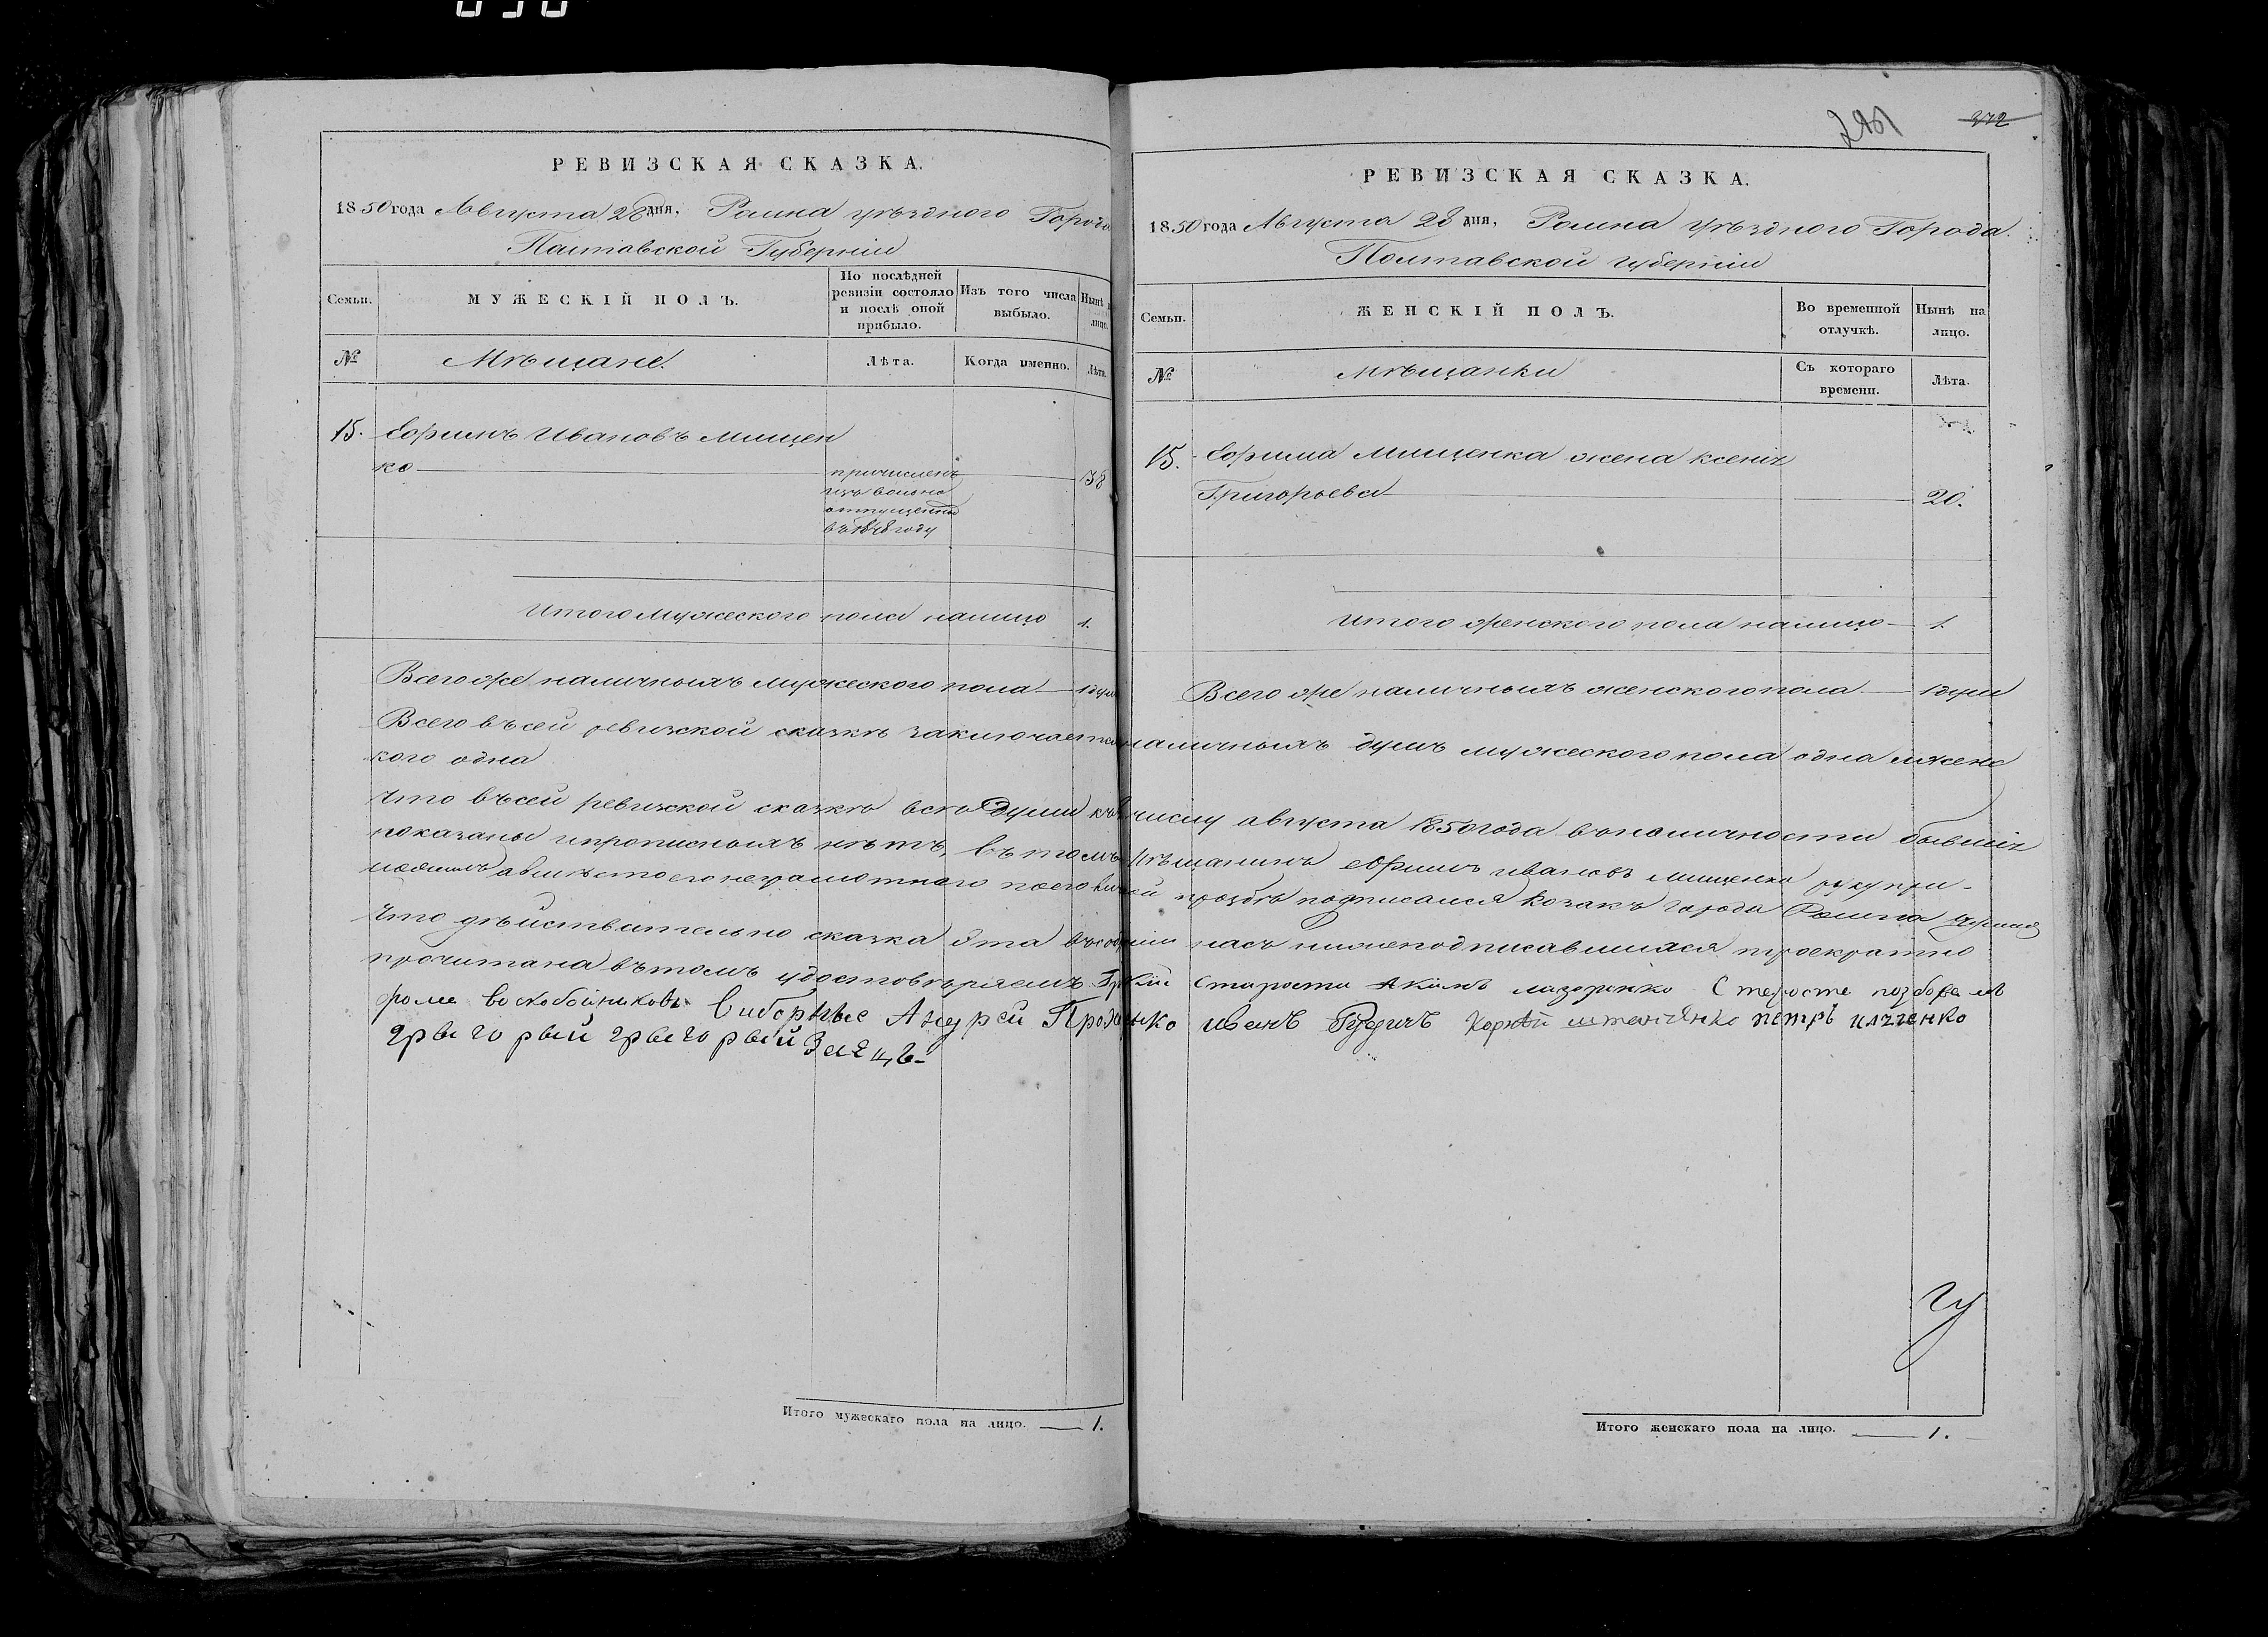 РЕВИЗСКАЯ СКАЗКА.
1850 года Августа 28 дня, Ромна уѣздного Города
Полтавской Губерніи
Семьи.
МУЖЕСКІЙ ПОЛЪ.
По послѣдней ревизіи состояло и послѣ оной прибыло.
Изъ того числа выбыло.
Нынѣ
лицо.
№
Мѣщане.
Лѣта.
Когда именно.
Лѣта.
15. Ефимъ Ивановъ Мищен
ко
причисленъ
изъ вольно
отпущенны
въ 1848 году
38
Итого Мужеского пола налицо 1.
Всего же наличныхъ мужеского пола 1 душа
372
РЕВИЗСКАЯ СКАЗКА.
1850 года Августа 28 дня, Ромна уѣздного Города.
Полтавской губерніи
Семьи.
ЖЕНСКІЙ ПОЛЪ.
Во временной отлучкѣ.
Нынѣ на лицо.
№
Мѣщанки
Съ котораго времени.
Лѣта.
15. Ефима Мищенка жена Ксенія
Григорьева 20.
Итого женского пола налицо 1.
Всего же наличныхъ женского пола 1 душа
Всего въ сей ревизской сказкѣ заключается наличныхъ душъ мужеского пола одна и женс
кого одна
Что въ сей ревизской сказкѣ всѣ души къ числу августа 1850 года в наличности бывшія
показаны и прописныхъ нѣтъ, въ томъ Мѣщанинъ Ефимъ Ивановъ Мищенко руку при-
ложилъ а вмѣсто его неграмотного по его личной прозбѣ подписался Козакъ города Ромна
Что дѣйствительно сказка эта въ собраніи насъ нижеподписавшихся троекратно
прочитана въ томъ удостовѣряемъ Старости Акимъ Лазоренко Старосте
Воскобойниковъ Виборные Андрей Проданко Иванъ Корнѣй Петръ Илченко
Грыгорый Грыгорый Заецъ
Итого мужескаго пола на лицо. 1.
Итого женскаго пола на лицо. 1.